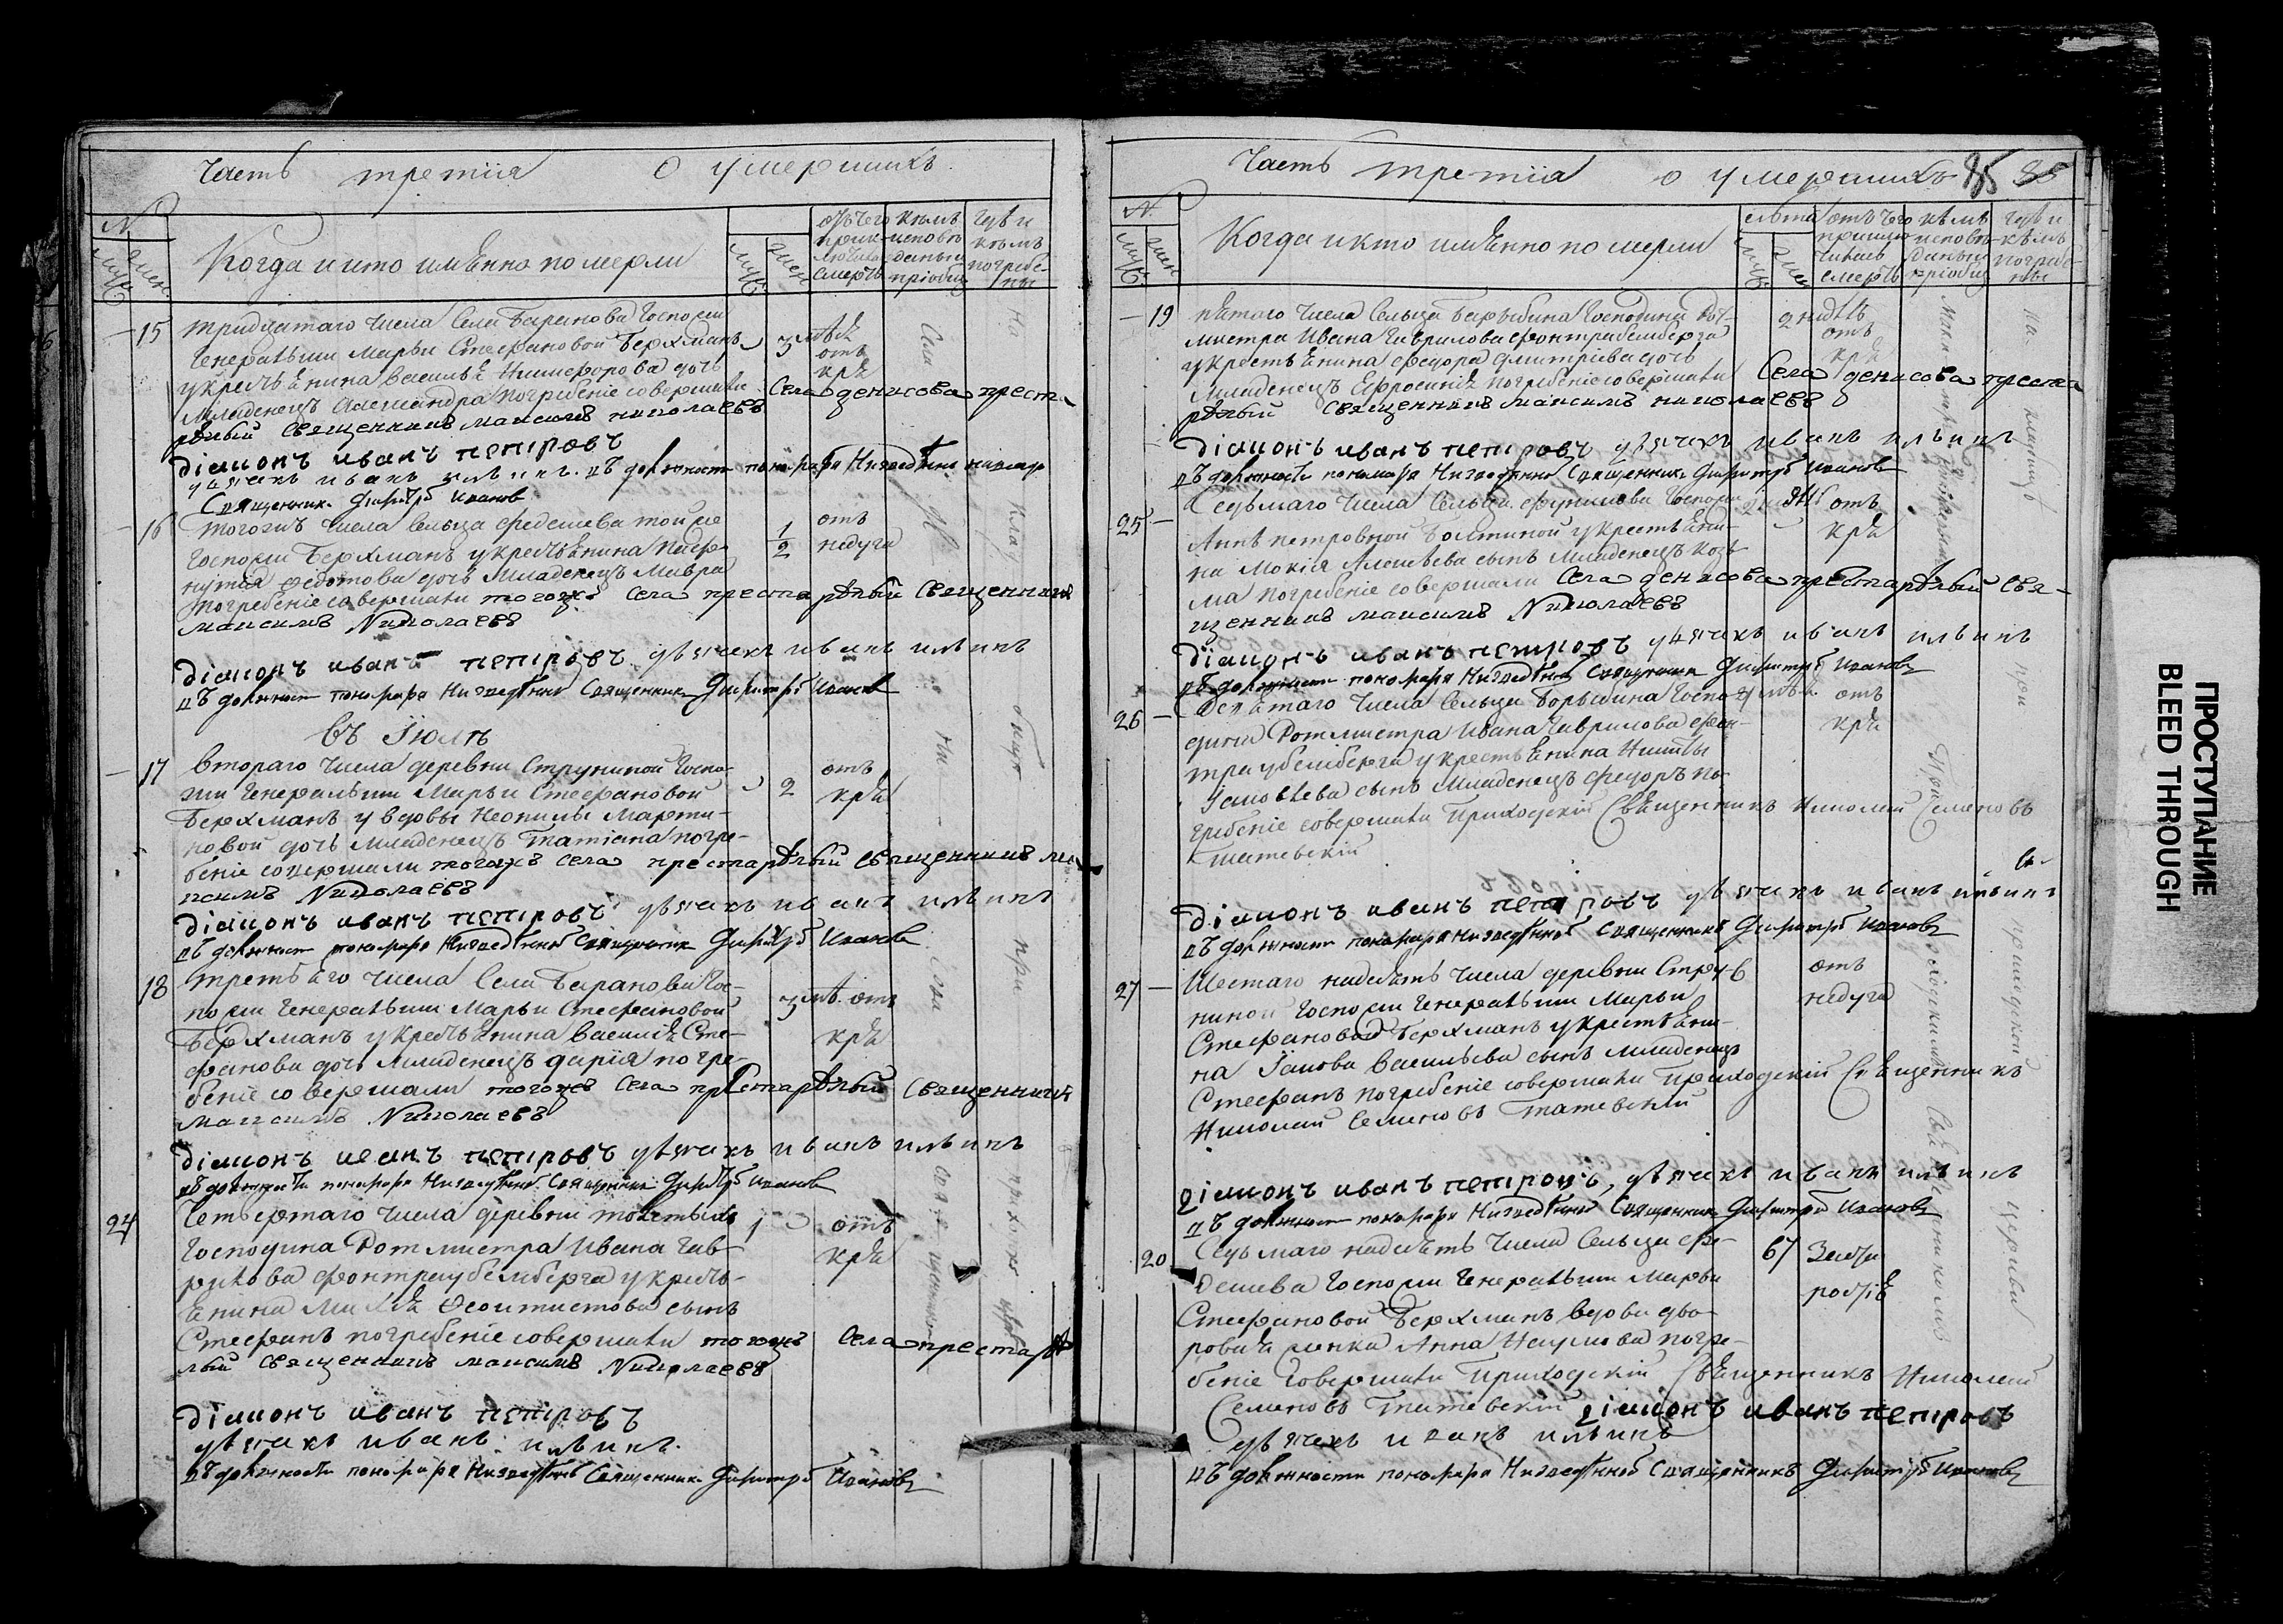 Часть третiя О умершихъ
№
Когда и кто имѣнно померли
отъ чего приключилась смерть
кѣмъ исповѣданы и прiобщ
гдѣ и кѣмъ погребены
15
тридцатаго числа Села Баранова Госпожи
Генеральши Марьи Стефановой Берхманъ
у кресть ѣнина Василья Никифорова дочь
младенецъ Александра погребенiе совершали Села денисова преста
рѣлый священникъ максимъ николаевъ
дiаконъ иванъ петровъ
дьячекъ иванъ ильинъ. въ должности пономаря Низведенный
Священникъ Димитрiй Ивановъ
3 лѣтъ
отъ
кри
16
тогожъ числа Сельца Федешева той же
Госпожи Берхманъ у крестьѣнина
Федотова дочь младенецъ Мавра
погребенiе совершали тогожъ Села преста рѣлый священникъ
максимъ Николаевъ
дiаконъ иванъ петровъ дьячекъ иванъ ильинъ
въ должности пономаря Низведенный Священникъ Димитрiй Ивановъ
1/2
отъ
недуга
Въ Iюлѣ
17
Втораго числа деревни Струниной Госпо-
жи Генеральши Марьи Стефановой
Берхманъ у вдовы Неонилы Марти-
новой дочь младенецъ Татiана погре-
бенiе совершали тогожъ села преста рѣлый священникъ ма
ксимъ Николаевъ
дiаконъ иванъ петровъ дьячекъ иванъ ильинъ
въ должности пономаря Низведенный Священникъ Димитрiй Ивановъ
2
отъ
кри
18
третьѣго числа Села Баранова Гос-
пожи Генеральши Марьи Стефановой
Берхманъ у крестьѣнина Василiя Сте-
фанова дочь младенецъ дарiя погре-
бенiе совершали тогожъ Села престарѣлый священникъ
максимъ Николаевъ
дiаконъ иванъ петровъ дьячекъ иванъ ильинъ
въ должности пономаря Низведенный Священникъ Димитрiй Ивановъ
3 лѣ. отъ
кри
24
Четвертаго числа деревни
Господина Ротмистра Ивана Гав-
рилова фонтраубемберга у кресть-
ѣнина сынъ
Стефанъ погребенiе совершали тогожъ Села престарѣ
лый священникъ максимъ Николаевъ
дiаконъ иванъ петровъ
дьячекъ иванъ ильинъ.
въ должности пономаря Низведенный Священникъ Димитрiй Ивановъ
1
отъ
кри
Часть третiя о умершихъ 85
№
Когда и кто имѣнно померли
лѣта
отъ чего приключилась смерть
кѣмъ исповѣданы и прiобщ
гдѣ и кѣмъ погребены
19
пѣтаго числа Сельца Барыбина Господина Рот-
мистра Ивана Гаврилова фонтраубемберга
у крестьѣнина федора дмитрiева дочь
младенецъ Ефросинiя погребенiе совершали Села денисова преста
рѣлый священникъ максимъ николаевъ
дiаконъ иванъ петровъ дьячекъ иванъ ильинъ
въ должности пономаря Низведенный Священникъ Димитрiй Ивановъ
2 отъ
кри
25
Седьмаго числа Сельца Госпожи
Аннѣ петровной Болтиной у крестьѣни-
на Мокiя Алексѣева сынъ младенецъ Козь-
ма погребенiе совершали Села денисова престарѣлый свя-
щенникъ максимъ Николаевъ
дiаконъ иванъ петровъ дьячекъ иванъ ильинъ
въ должности пономаря Низведенный Священникъ Димитрiй Ивановъ
отъ
кри
26
Девѣтаго числа Сельца Госпо-
дина Ротмистра Ивана Гаврилова фон-
траубемберга у крестьѣнина Никиты
Iаковлева сынъ младенецъ федоръ по-
гребенiе совершали Приходскiй Свѣщенникъ Николай Семеновъ
Татевскiй
дiаконъ иванъ петровъ дьячекъ иванъ ильинъ
въ должности пономаря Низведенный Священникъ Димитрiй Ивановъ
отъ
кри
27
Шестаго надесѣть числа деревни Стру-
ниной Госпожи Генеральши Марьи
Стефановой Берхманъ у крестьѣни-
на Iакова Васильева сынъ младенецъ
Стефанъ погребенiе совершали Приходскiй Свѣщенникъ
Николай Семеновъ Татевскiй
дiаконъ иванъ петровъ, дьячекъ иванъ ильинъ
въ должности пономаря Низведенный Священникъ Димитрiй Ивановъ
6
отъ
недуга
20
Седьмаго надесѣть числа Сельца Фе-
дешева Госпожи Генеральши Марьи
Стефановой Берхманъ вдова дво-
ровая Анна Наумова погре-
бенiе совершали Приходскiй Свѣщенникъ Николай
Семеновъ Татевскiй дiаконъ иванъ петровъ
дьячекъ иванъ ильинъ
въ должности пономаря Низведенный Священникъ Димитрiй Ивановъ
67
ПРОСТУПАНИЕ
BLEED THROUGH